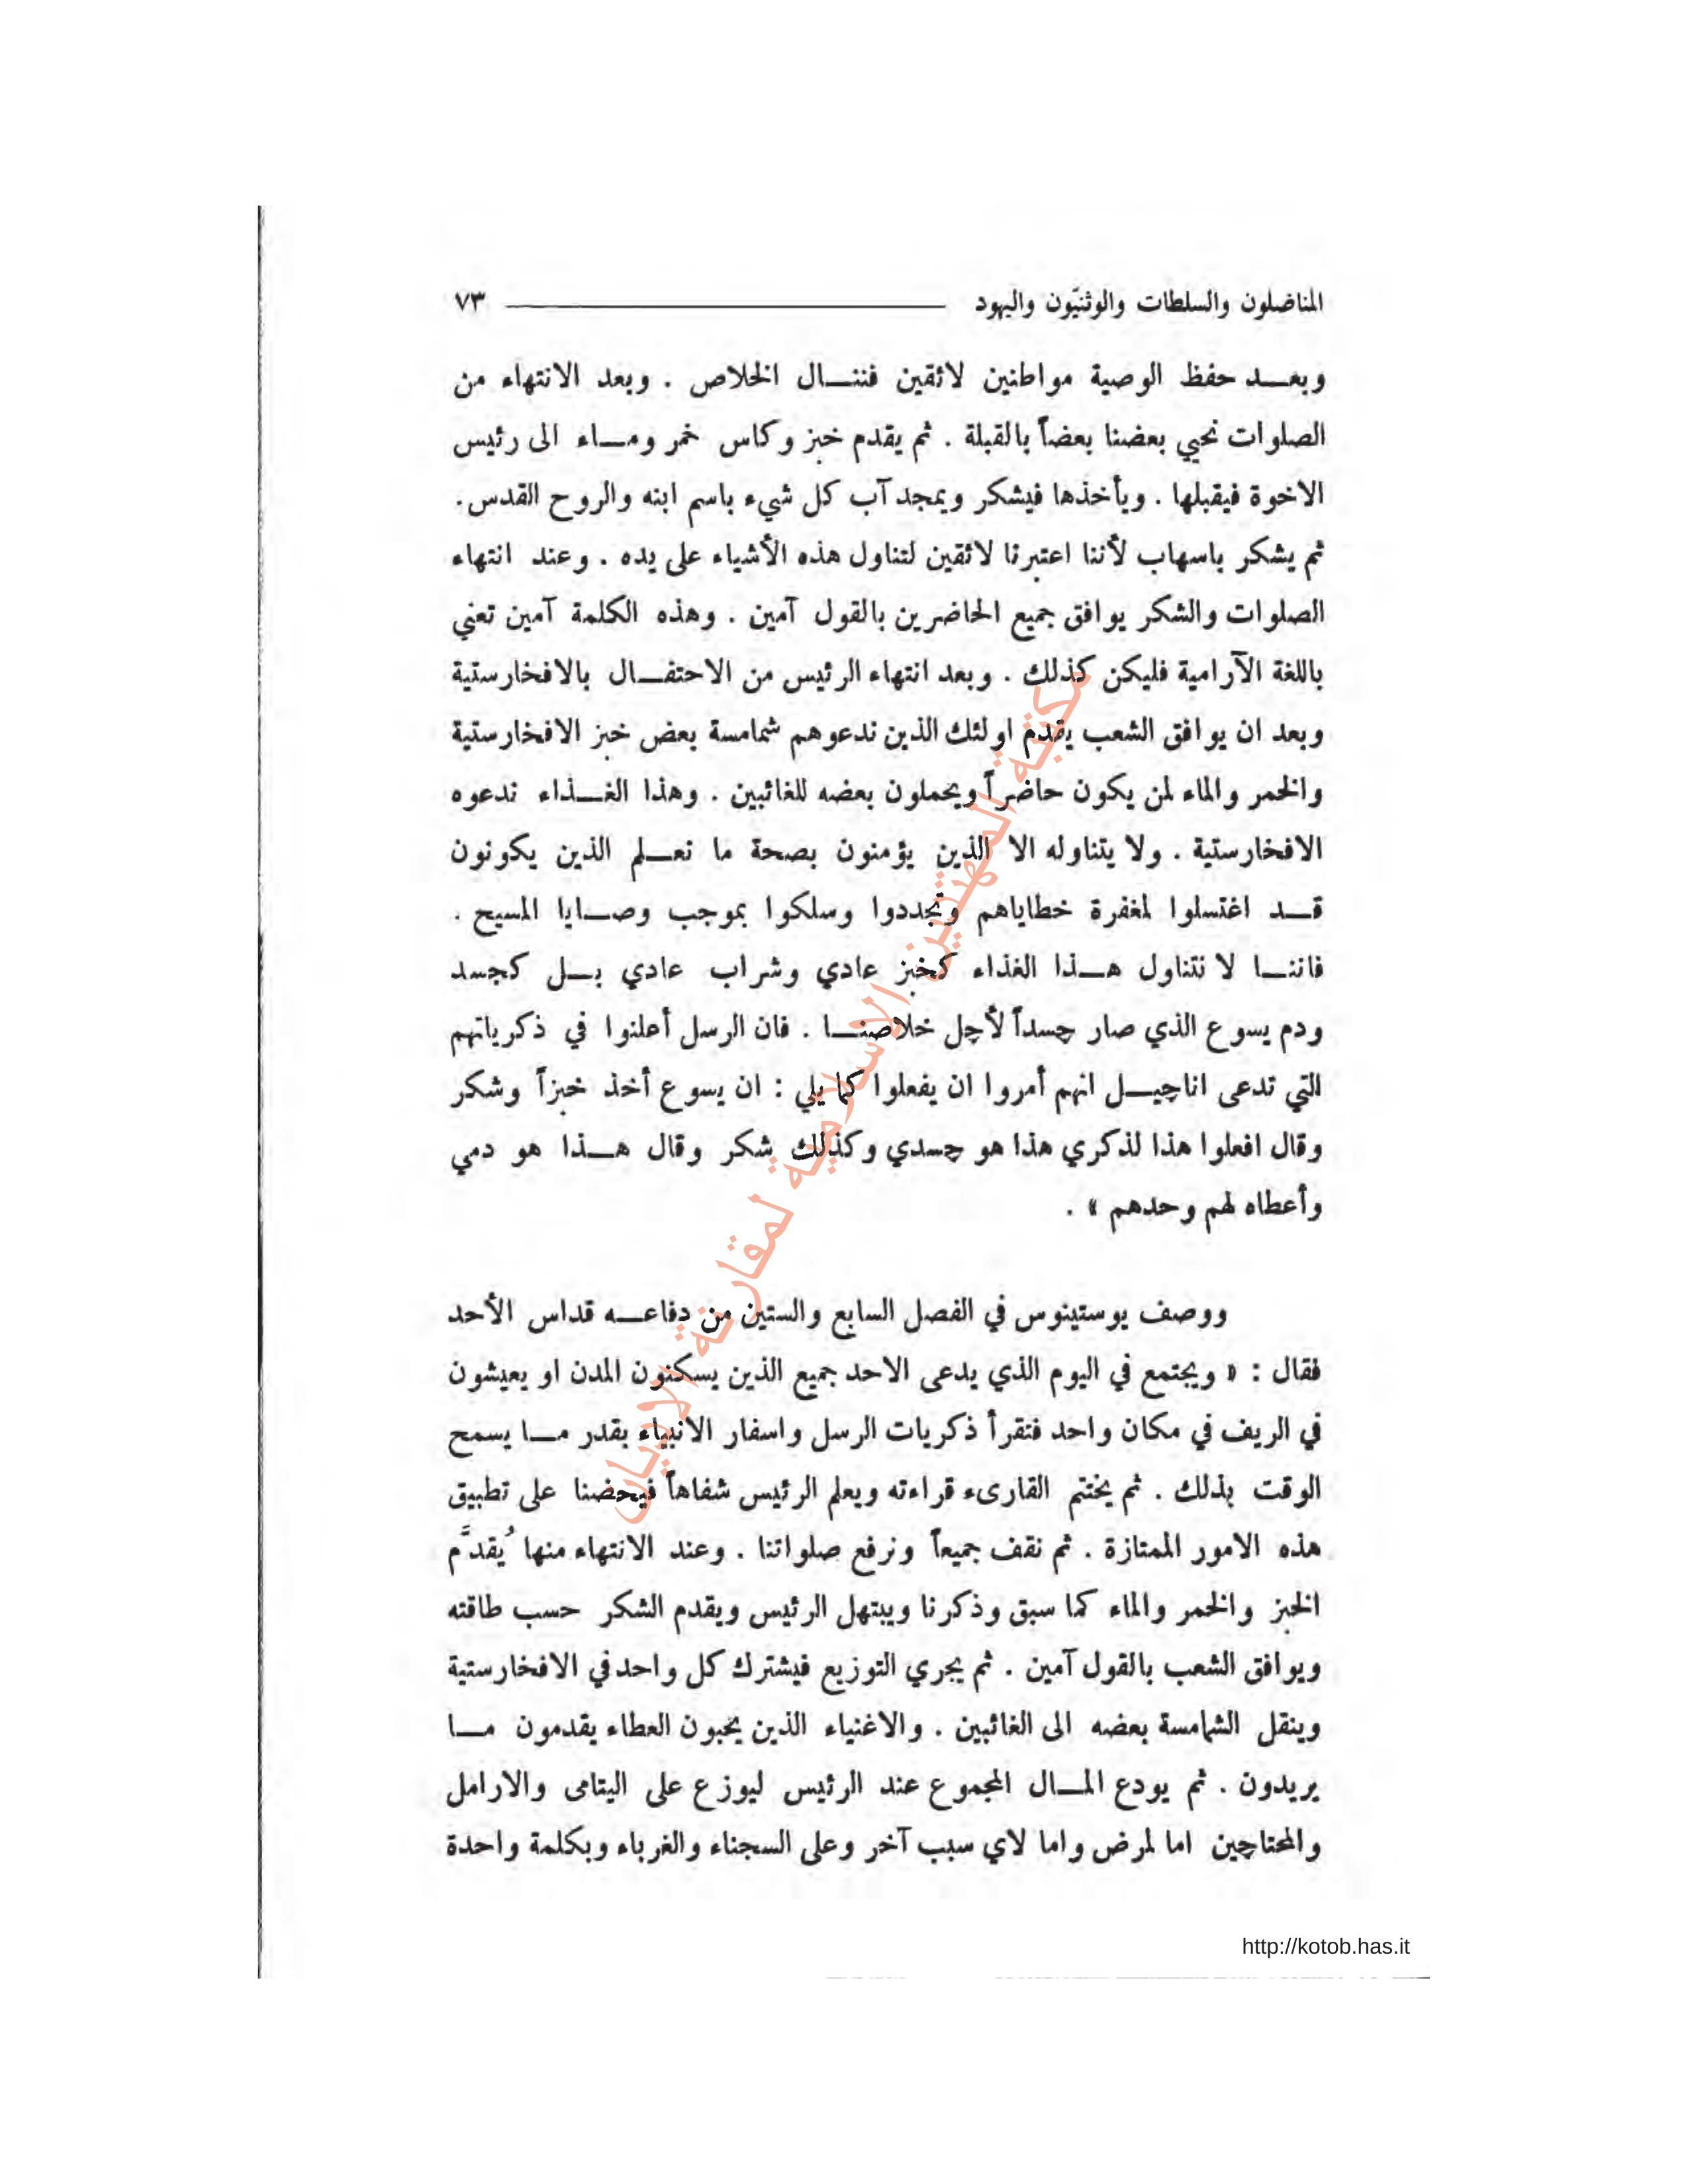 المناضلون والسلطات والوثنيّون واليهود ٧٣
وبعد حفظ الوصية مواطنين لائقين فننال الخلاص . وبعد الانتهاء من
الصلوات نحيي بعضنا بعضاً بالقبلة . ثم يقدم خبز وكاس خمر وماء الى رئيس
الاخوة فيقبلها . ويأخذها فيشكر ويمجد آب كل شيء باسم ابنه والروح القدس .
ثم يشكر باسهاب لأننا اعتبرنا لائقين لتناول هذه الأشياء على يده . وعند انتهاء
الصلوات والشكر يوافق جميع الحاضرين بالقول آمين . وهذه الكلمة آمين تعني
باللغة الآرامية فليكن كذلك . وبعد انتهاء الرئيس من الاحتفال بالافخارستية
وبعد ان يوافق الشعب يقدم اولئك الذين ندعوهم شمامسة بعض خبز الافخارستية
والخمر والماء لمن يكون حاضراً ويحملون بعضه للغائبين . وهذا الغذاء ندعوه
الافخارستية . ولا يتناوله الا الذين يؤمنون بصحة ما نعلم الذين يكونون
قد اغتسلوا لمغفرة خطاياهم وتجددوا وسلكوا بموجب وصايا المسيح .
فاننا لا نتناول هذا الغذاء كخبز عادي وشراب عادي بل كجسد
ودم يسوع الذي صار جسداً لأجل خلاصنا . فان الرسل أعلنوا في ذكرياتهم
التي تدعى اناجيل انهم أمروا ان يفعلوا كما يلي : ان يسوع أخذ خبزاً وشكر
وقال افعلوا هذا لذكري هذا هو جسدي وكذلك شكر وقال هذا هو دمي
وأعطاه لهم وحدهم » .
ووصف يوستينوس في الفصل السابع والستين من دفاعه قداس الأحد
فقال : « ويجتمع في اليوم الذي يدعى الاحد جميع الذين يسكنون المدن او يعيشون
في الريف في مكان واحد فتقرأ ذكريات الرسل واسفار الانبياء بقدر ما يسمح
الوقت بذلك . ثم يختم القارىء قراءته ويعلم الرئيس شفاهاً فيحضنا على تطبيق
هذه الامور الممتازة . ثم نقف جميعاً ونرفع صلواتنا . وعند الانتهاء منها يُقدَّم
الخبز والخمر والماء كما سبق وذكرنا ويبتهل الرئيس ويقدم الشكر حسب طاقته
ويوافق الشعب بالقول آمين . ثم يجري التوزيع فيشترك كل واحد في الافخارستية
وينقل الشمامسة بعضه الى الغائبين . والاغنياء الذين يحبون العطاء يقدمون ما
يريدون . ثم يودع المال المجموع عند الرئيس ليوزع على اليتامى والارامل
والمحتاجين اما لمرض واما لاي سبب آخر وعلى السجناء والغرباء وبكلمة واحدة
مكتبة المهتدين الإسلامية لمقارنة الأديان
http://kotob.has.it